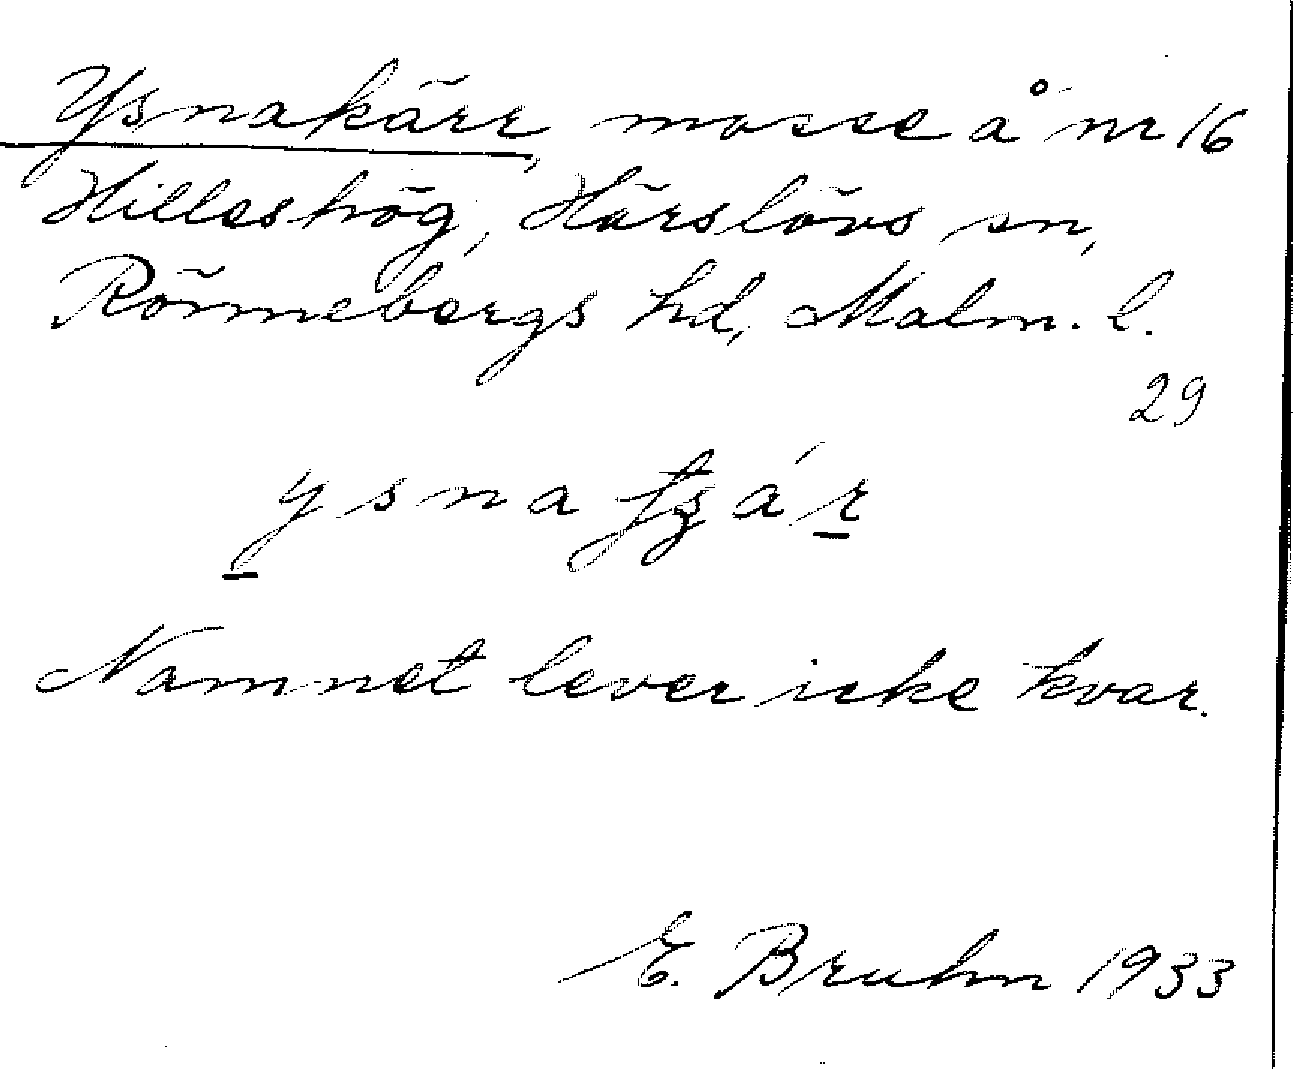 Ysnakärr, mosse å nr 16
Hilleshög, Härslövs sn,
Rönnebergs hd, Malm. l.
29
ysna
Namnet lever icke kvar.
E. Bruhn 1933